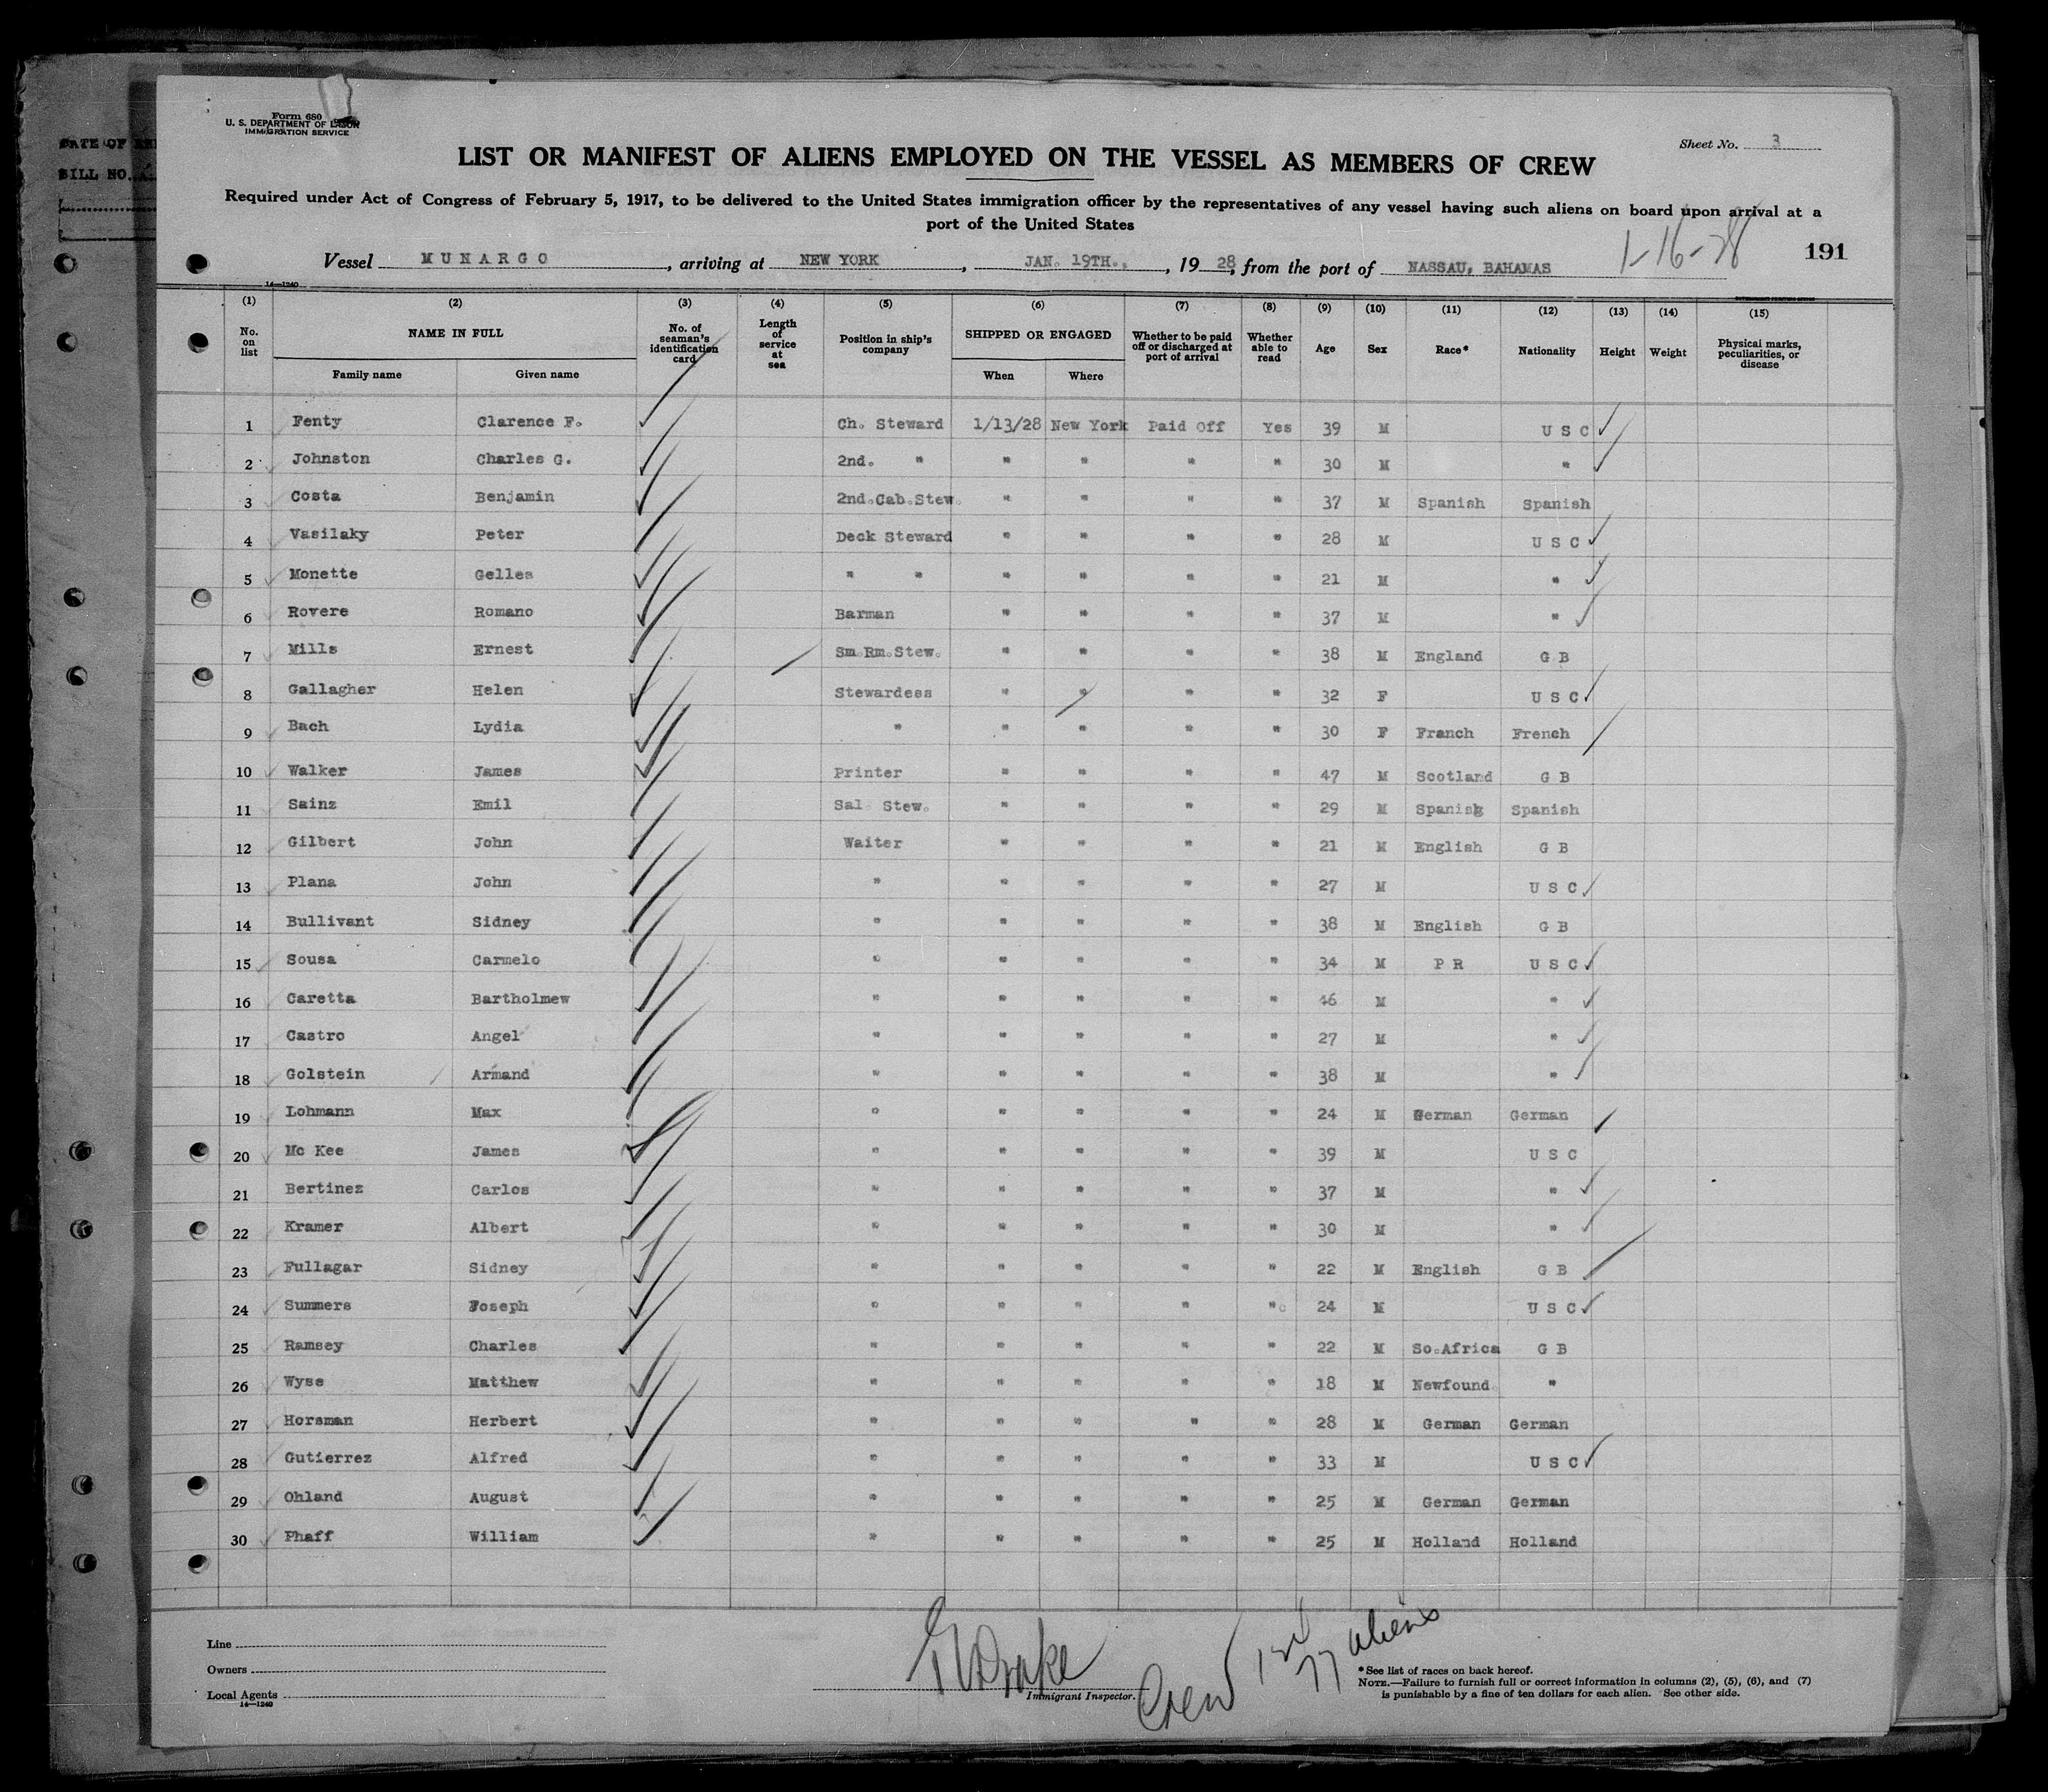 Form 680
U. S. DEPARTMENT OF LABOR
IMMIGRATION SERVICE
Sheet No. 3
LIST OR MANIFEST OF ALIENS EMPLOYED ON THE VESSEL AS MEMBERS OF CREW
Required under Act of Congress of February 5, 1917, to be delivered to the United States immigration officer by the representatives of any vessel having such aliens on board upon arrival at a
port of the United States
1-16-28 191
Vessel MUNARGO, arriving at NEW YORK, JAN. 19TH., 1928, from the port of NASSAU, BAHAMAS
14—1240
(1) (2) (3) (4) (5) (6) (7) (8) (9) (10) (11) (12) (13) (14) (15)
No. on list NAME IN FULL No. of seaman's identification card Length of service at sea Position in ship's company SHIPPED OR ENGAGED Whether to be paid off or discharged at port of arrival Whether able to read Age Sex Race* Nationality Height Weight Physical marks, peculiarities, or disease
Family name Given name When Where
1 Fenty Clarence F. Ch. Steward 1/13/28 New York Paid Off Yes 39 M U S C
2 Johnston Charles G. 2nd. " " " " " 30 M "
3 Costa Benjamin 2nd.Cab.Stew. " " " " 37 M Spanish Spanish
4 Vasilaky Peter Deck Steward " " " " 28 M U S C
5 Monette Gelles " " " " " " 21 M "
6 Rovere Romano Barman " " " " 37 M "
7 Mills Ernest Sm.Rm.Stew. " " " " 38 M England G B
8 Gallagher Helen Stewardess " " " " 32 F U S C
9 Bach Lydia " " " " " 30 F Franch French
10 Walker James Printer " " " " 47 M Scotland G B
11 Sainz Emil Sal. Stew. " " " " 29 M Spanish Spanish
12 Gilbert John Waiter " " " " 21 M English G B
13 Plana John " " " " " 27 M U S C
14 Bullivant Sidney " " " " " 38 M English G B
15 Sousa Carmelo " " " " " 34 M P R U S C
16 Caretta Bartholmew " " " " " 46 M "
17 Castro Angel " " " " " 27 M "
18 Golstein Armand " " " " " 38 M "
19 Lohmann Max " " " " " 24 M German German
20 Mc Kee James " " " " " 39 M U S C
21 Bertinez Carlos " " " " " 37 M "
22 Kramer Albert " " " " " 30 M "
23 Fullagar Sidney " " " " " 22 M English G B
24 Summers Joseph " " " " " 24 M U S C
25 Ramsey Charles " " " " " 22 M So.Africa G B
26 Wyse Matthew " " " " " 18 M Newfound. "
27 Horsman Herbert " " " " " 28 M German German
28 Gutierrez Alfred " " " " " 33 M U S C
29 Ohland August " " " " " 25 M German German
30 Phaff William " " " " " 25 M Holland Holland
Line
Owners
Local Agents
14—1240
Drake
Immigrant Inspector.
Crew
77 aliens
*See list of races on back hereof.
NOTE.—Failure to furnish full or correct information in columns (2), (5), (6), and (7)
is punishable by a fine of ten dollars for each alien. See other side.